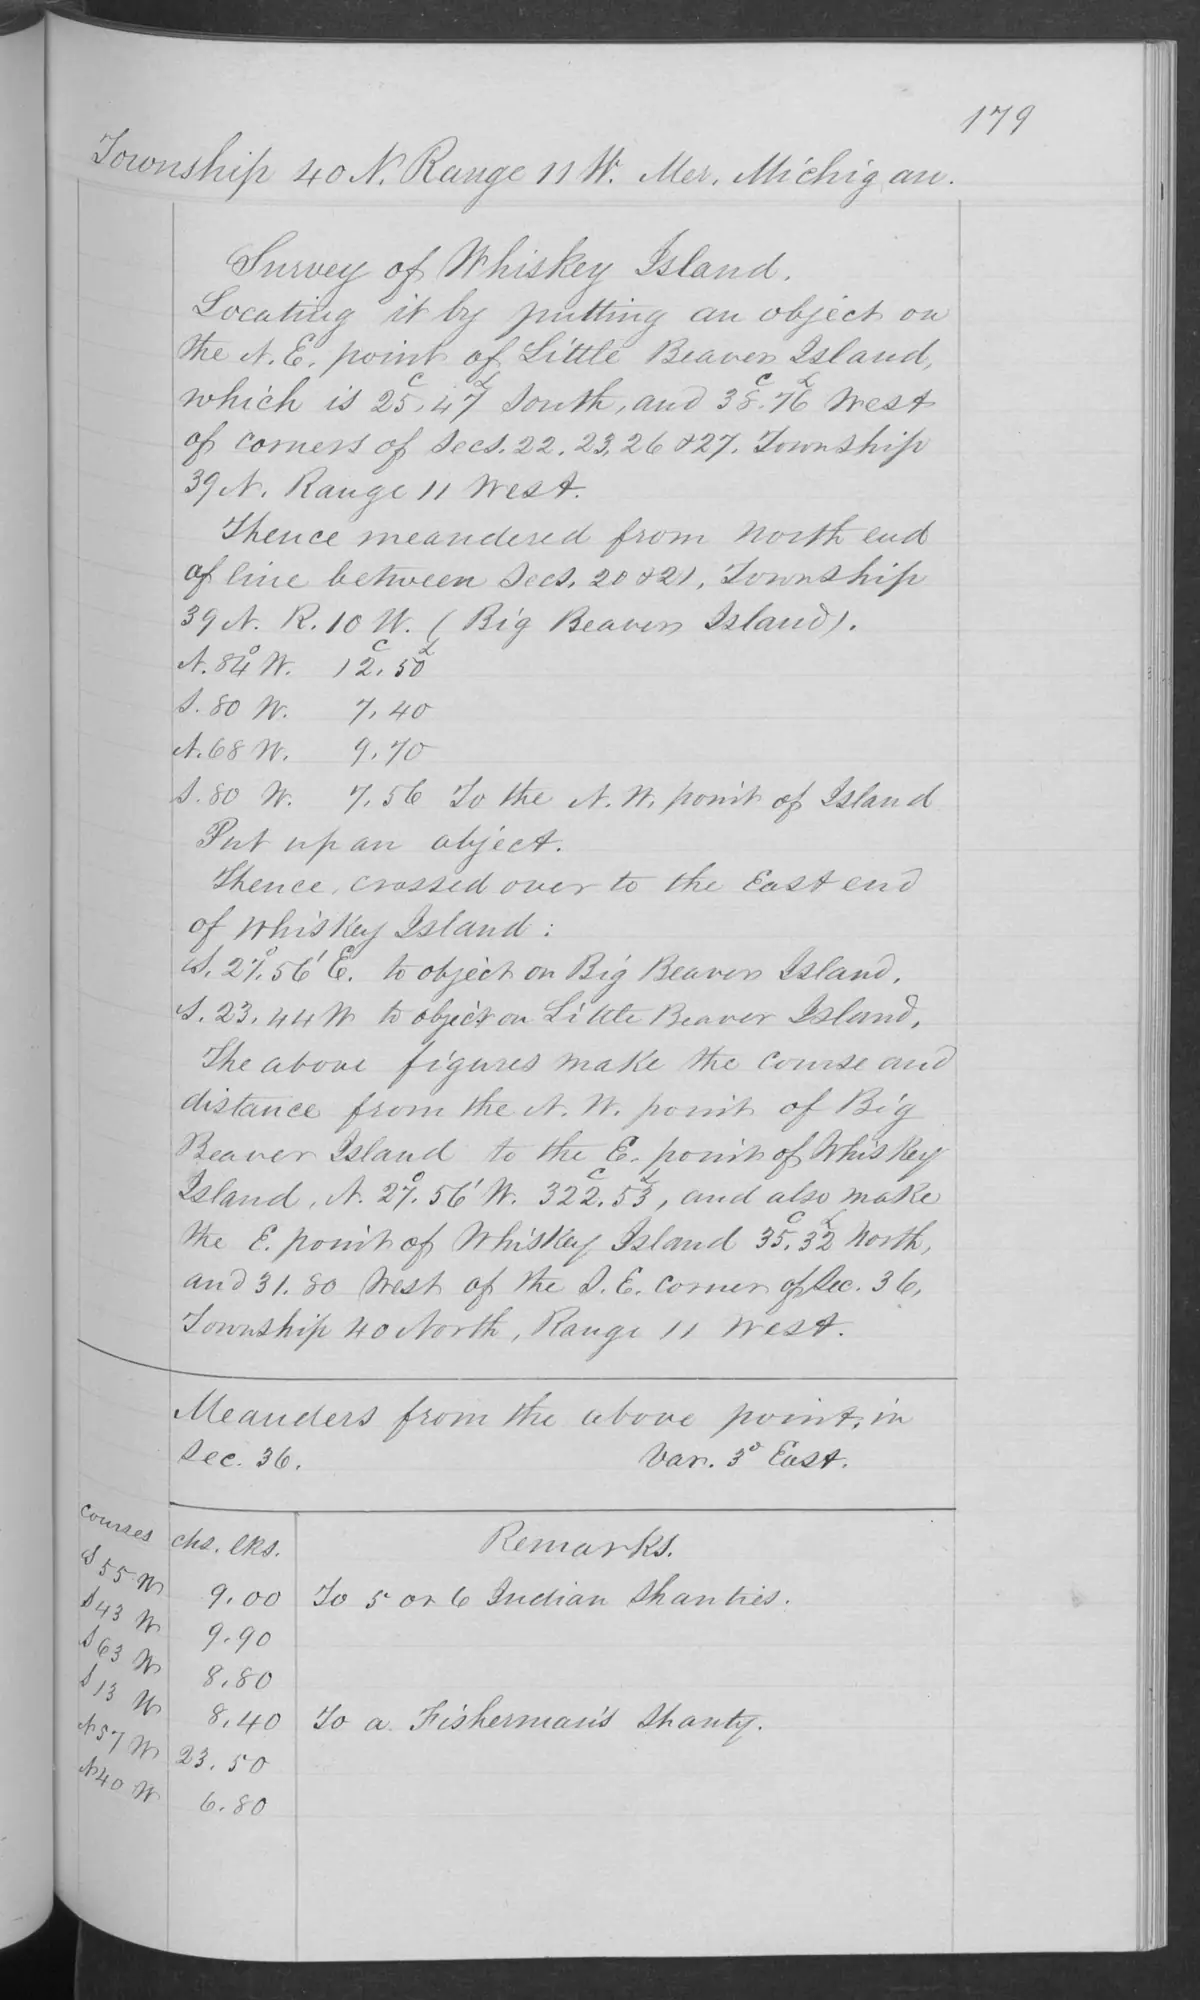 179
Township 40 N. Range 11 W. Mer. Michigan.
Survey of Whiskey Island.
Locating it by putting an object on
the N. E. point of Little Beaver Island,
which is 25ᶜ.47ᴸ South, and 38ᶜ.76ᴸ West
of corners of Secs. 22. 23, 26 & 27. Township
39 N. Range 11 West.
Thence meandered from North end
of line between Secs. 20 & 21, Township
39 N. R. 10 W. (Big Beaver Island).
N. 84° W. 12ᶜ.50ᴸ
S. 80 W. 7.40
N. 68 W. 9.70
S. 80 W. 7.56 To the N. W. point of Island
Put up an object.
Thence, crossed over to the East end
of Whiskey Island:
S. 27°.56' E. to object on Big Beaver Island.
S. 23.44 W to object on Little Beaver Island.
The above figures make the course and
distance from the N. W. point of Big
Beaver Island to the E. point of Whiskey
Island, N. 27°.56' W. 322ᶜ.53ᴸ, and also make
the E. point of Whiskey Island 35ᶜ.32ᴸ North,
and 31.80 West of the S. E. corner of Sec. 36,
Township 40 North, Range 11 West.
Meanders from the above point, in
Sec. 36. Var. 3° East.
courses chs. lks. Remarks.
S 55 W 9.00 To 5 or 6 Indian Shanties.
S 43 W 9.90
S 63 W 8.80
S 13 W 8.40 To a Fisherman's Shanty.
N 57 W 23.50
N 40 W 6.80